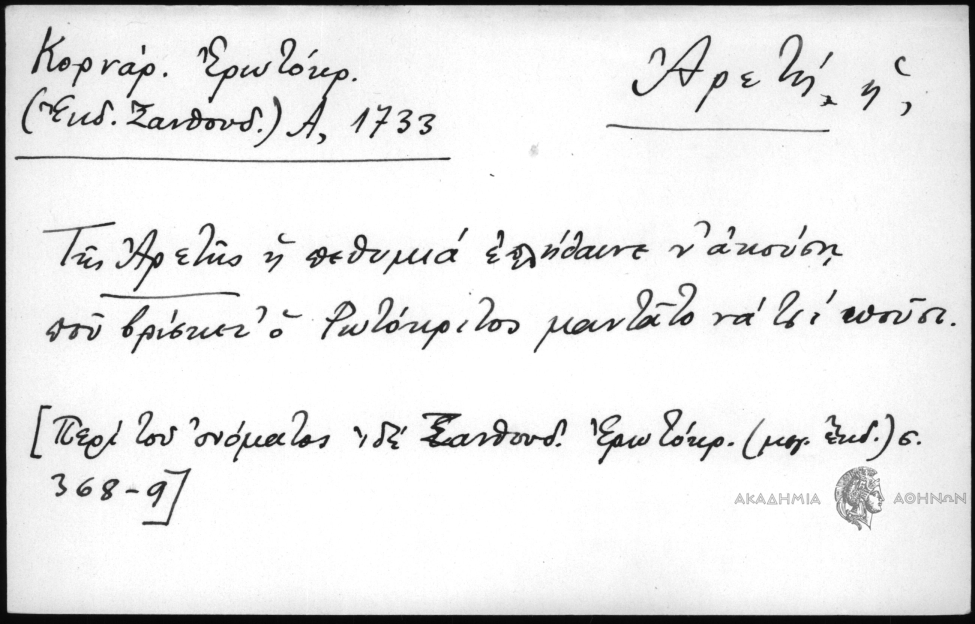 Κορνάρ. Ἐρωτόκρ.
(Ἐκδ. Ξανθουδ.) Α, 1733
Ἀρετή, ἡ,
Τῆς Ἀρετῆς ἡ πεθυμιά ἐπλήθαινε ν' ἀκούσῃ
ποῦ βρίσκετ' ὁ Ρωτόκριτος μαντᾶτο νά τςἱ ποῦσι.
[Περί τοῦ ὀνόματος ἰδέ Ξανθουδ. Ἐρωτόκρ. (μεγ. ἐκδ.) σ.
368-9]
ΑΚΑΔΗΜΙΑ ΑΘΗΝΩΝ